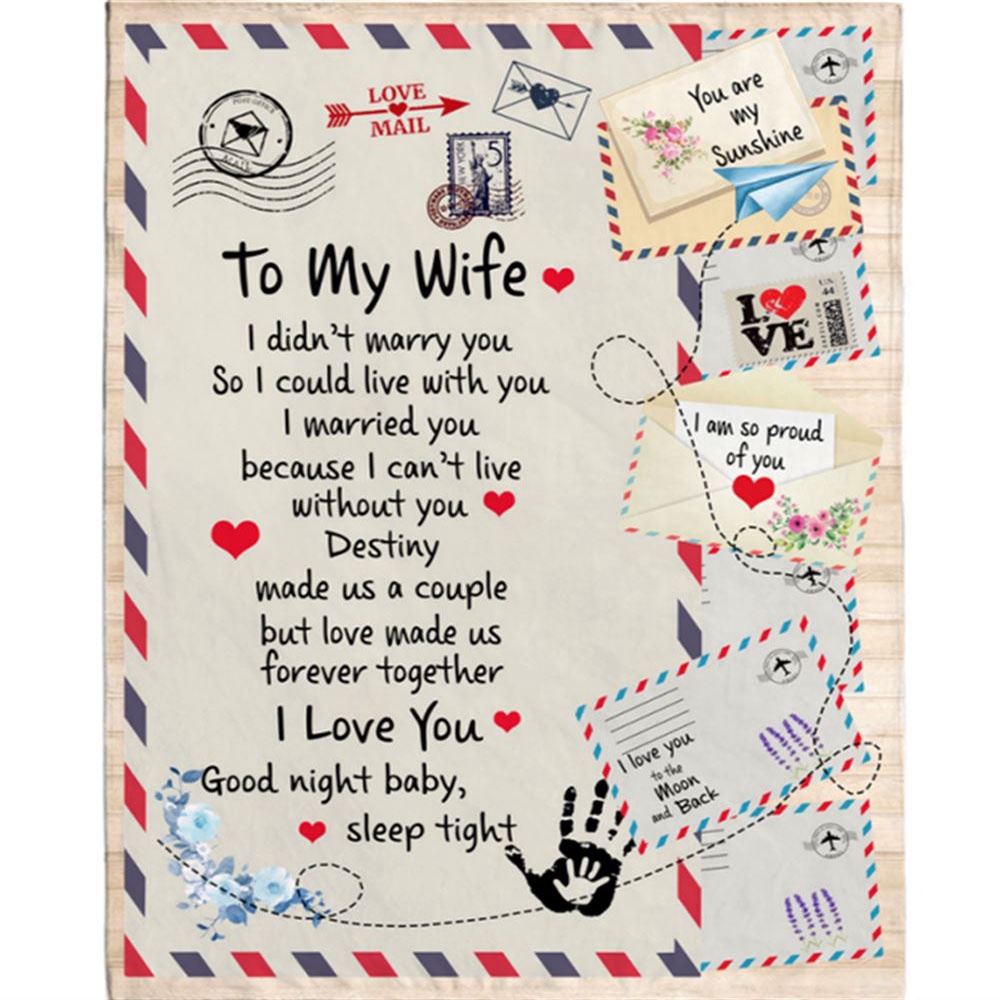 POST OFFICE
MAIL
LOVE
MAIL
NEW YORK
5
To My Wife
I didn't marry you
So I could live with you
I married you
because I can't live
without you
Destiny
made us a couple
but love made us
forever together
I Love You
Good night baby,
sleep tight
You are
my
Sunshine
LOVE
44
I am so proud
of you
I love you
to the
Moon
and Back